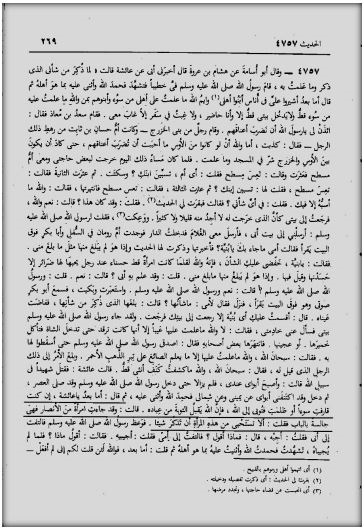 الحديث ٤٧٥٧ ٢٦٩
٤٧٥٧ — وقال أبو أسامة عن هشام بن عروة قال أخبرني أبي عن عائشة قالت « لما ذُكِرَ من شأني الذي
ذكر وما علمت به ، قام رسول الله صلى الله عليه وسلم فيَّ خطيباً فتشهَّد فحمد الله وأثنى عليه بما هو أهلهُ ثم
قال أما بعد أشيروا عليَّ في أُناس أبنوا أهلي(١) وايمُ الله ما علمتُ على أهلي من سوء وأبنوهم بمن والله ما علمتُ عليه
من سوء قطُّ ولا يدخل بيتي قط إلا وأنا حاضر ، ولا غبتُ في سفر إلا غاب معي . فقام سعدُ بن مُعاذ فقال :
ائذن لي يارسول الله أن نضرب أعناقَهم . وقام رجل من بني الخزرج ــ وكانت أمُّ حسان بن ثابت من رهط ذلك
الرجل ــ فقال : كذبتَ ، أما والله أنْ لو كانوا من الأَوْس ما أحببتَ أن تُضرب أعناقهم ، حتى كادَ أن يكون
بينَ الأَوْسِ والخزرج شرٌّ في المسجد وما علمت . فلما كان مساءُ ذلك اليوم خرجت لبعض حاجتي ومعي أمُّ
مِسطح فعثَرت وقالت : تعِسَ مِسطح فقلت : أي أُم ، تسبِّين ابنكِ ؟ وسكتت . ثم عثرَت الثانية فقالت :
تعِسَ مِسطح ، فقلت لها : تسبين ابنك ؟ ثم عثرَت الثالثة ، فقالت : تعس مِسطح فانتهرتها ، فقالت : والله ما
أسبُّه إلا فيك . فقلت : في أيِّ شأني ؟ قالت فبقرت لي الحديث(٢) . فقلت : وقد كان هذا ؟ قالت : نعم والله ،
فرجعتُ إلى بيتي كأنَّ الذي خرجت له لا أجدُ منه قليلا ولا كثيراً . ووَعِكت(٣) ، فقلت لرسول الله صلى الله عليه
وسلم : أرسلني إلى بيت أبي ، فأرسل معي الغُلام فدخلتُ الدار فوجدت أمَّ رومان في السُّفل وأبا بكر فوق
البيت يَقرأ فقالت أمي ماجاء بكِ يابُنيَّة؟ فأخبرتها وذكرت لها الحديث وإذا هو لم يبلغ منها مثلَ ما بلغ مني .
فقالت : يابنية ، خفِّضي عليكِ الشأن ، فإنه والله لقلما كانت امرأة قط حسناء عند رجل يحبها لها ضرائر إلا
حسدنها وقيل فيها . وإذا هو لم يبلغ منها مابلغ مني . قلت : وقد علم به أبي ؟ قالت : نعم . قلت : ورسول
الله صلى الله عليه وسلم ؟ قالت : نعم ورسول الله صلى الله عليه وسلم . واستعبرت وبكيت ، فسمع أبو بكر
صوتي وهو فوق البيت يقرأ ، فنزل فقال لأمي : ماشأنها ؟ قالت : بلغها الذي ذُكر من شأنها ، ففاضت
عيناه . قال : أقسمت عليكِ أي بُنية إلا رجعت إلى بيتك فرجعت . ولقد جاء رسول الله صلى الله عليه وسلم
بيتي فسأل عني خادمتي ، فقالت : لا والله ماعلمت عليها عيباً إلا أنها كانت ترقد حتى تدخل الشاة فتأكل
خميرها . أو عجينها . فانتهرها بعض أصحابه فقال : اصدقي رسول الله صلى الله عليه وسلم حتى أسقطوا لها
به . فقالت : سبحان الله ، والله ماعلمت عليها إلا ما يعلم الصائغ على تِبر الذهب الأحمر . وبلغ الأمر إلى ذلك
الرجل الذي قيل له ، فقال : سبحان الله ، والله ماكشفتُ كنَف أنثى قط . قالت عائشة : فقتل شهيداً في
سبيل الله قالت : وأصبح أبواي عندي ، فلم يزالا حتى دخل عليَّ رسول الله صلى الله عليه وسلم وقد صلى العصر ،
ثم دخل وقد اكتنفني أبواي عن يميني وعن شمالي فحمد الله وأثنى عليه ، ثم قال : أما بعدُ ياعائشة ، إن كنتِ
قارفتِ سوءاً أو ظلمتِ فتوبي إلى الله ، فإن الله يقبلُ التوبة من عباده . قالت : وقد جاءت امرأة من الأنصار فهي
جالسة بالباب فقلت : ألا تستحيي من هذه المرأة أن تذكرَ شيئاً . فوعظَ رسول الله صلى الله عليه وسلم فالتفتُّ
إلى أبي فقلت : أجبه ، قال : فماذا أقول ؟ فالتفتُّ إلى أمي فقلت : أجيبيه . فقالت : أقولُ ماذا ؟ فلما لم
يُجيباه ، تشهَّدت فحمدت الله وأثنيت عليه بما هو أهلهُ ثم قلت : أما بعد ، فوالله لئن قلت لكم إني لم أفعل ــ
(١) أي اتهموا أهلي ورموهم بالقبيح .
(٢) بقرت لي الحديث : أي ذكرت تفصيله ودخيلته .
(٣) أي انحبست عن قضاء حاجتها ، وتجدد مرضها .